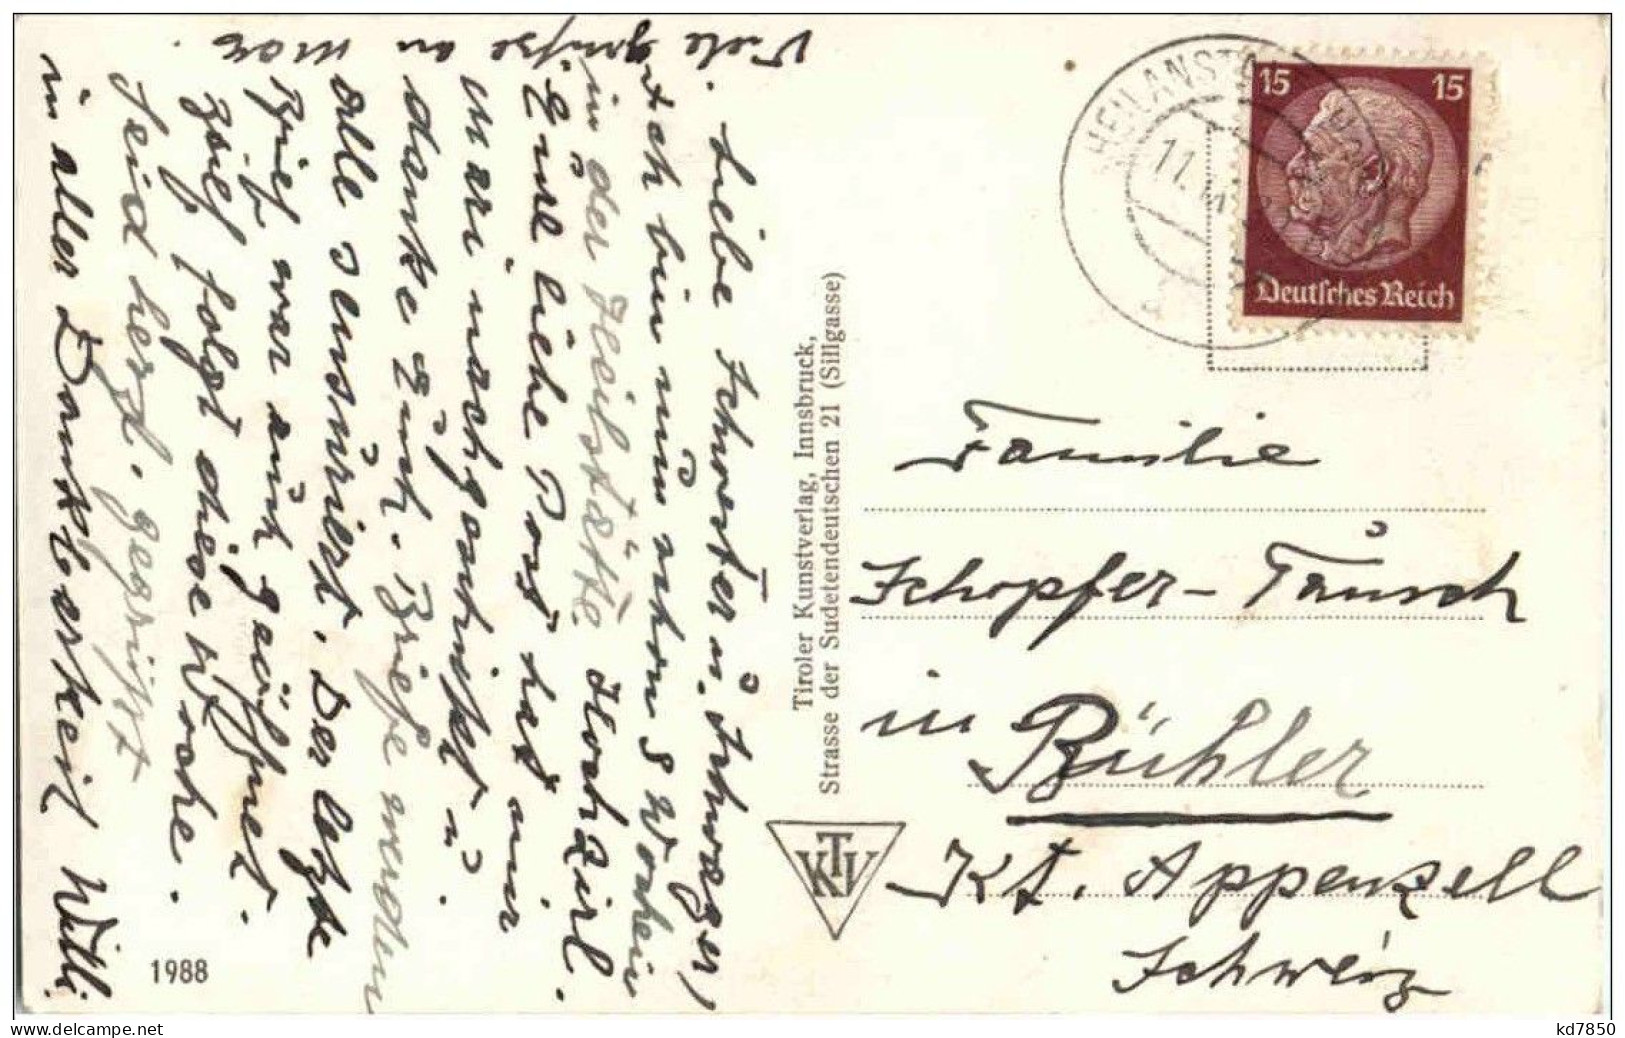 Viele Grüsse an Max.
Liebe Schwester u. Schwager,
Ich bin nun schon 8 Wochen
in der Heilstätte Hochzirl.
Eure liebe Post hat mir
Mari nachgeschickt u.
danke Euch. Briefe werden
alle sensuriert. Der letzte
Brief war auch geöffnet.
Brief folgt diese Woche.
Seid herzl. gegrüsst
in aller Dankbarkeit Willi
1988
Tiroler Kunstverlag, Innsbruck,
Strasse der Sudetendeutschen 21 (Sillgasse)
KTV
HEILANSTA
11.
a
15 15
Deutsches Reich
Familie
Schopfer-Tausch
in
Bühler
Kt. Appenzell
Schweiz
in-the-picture.delcampe.net
kd7850